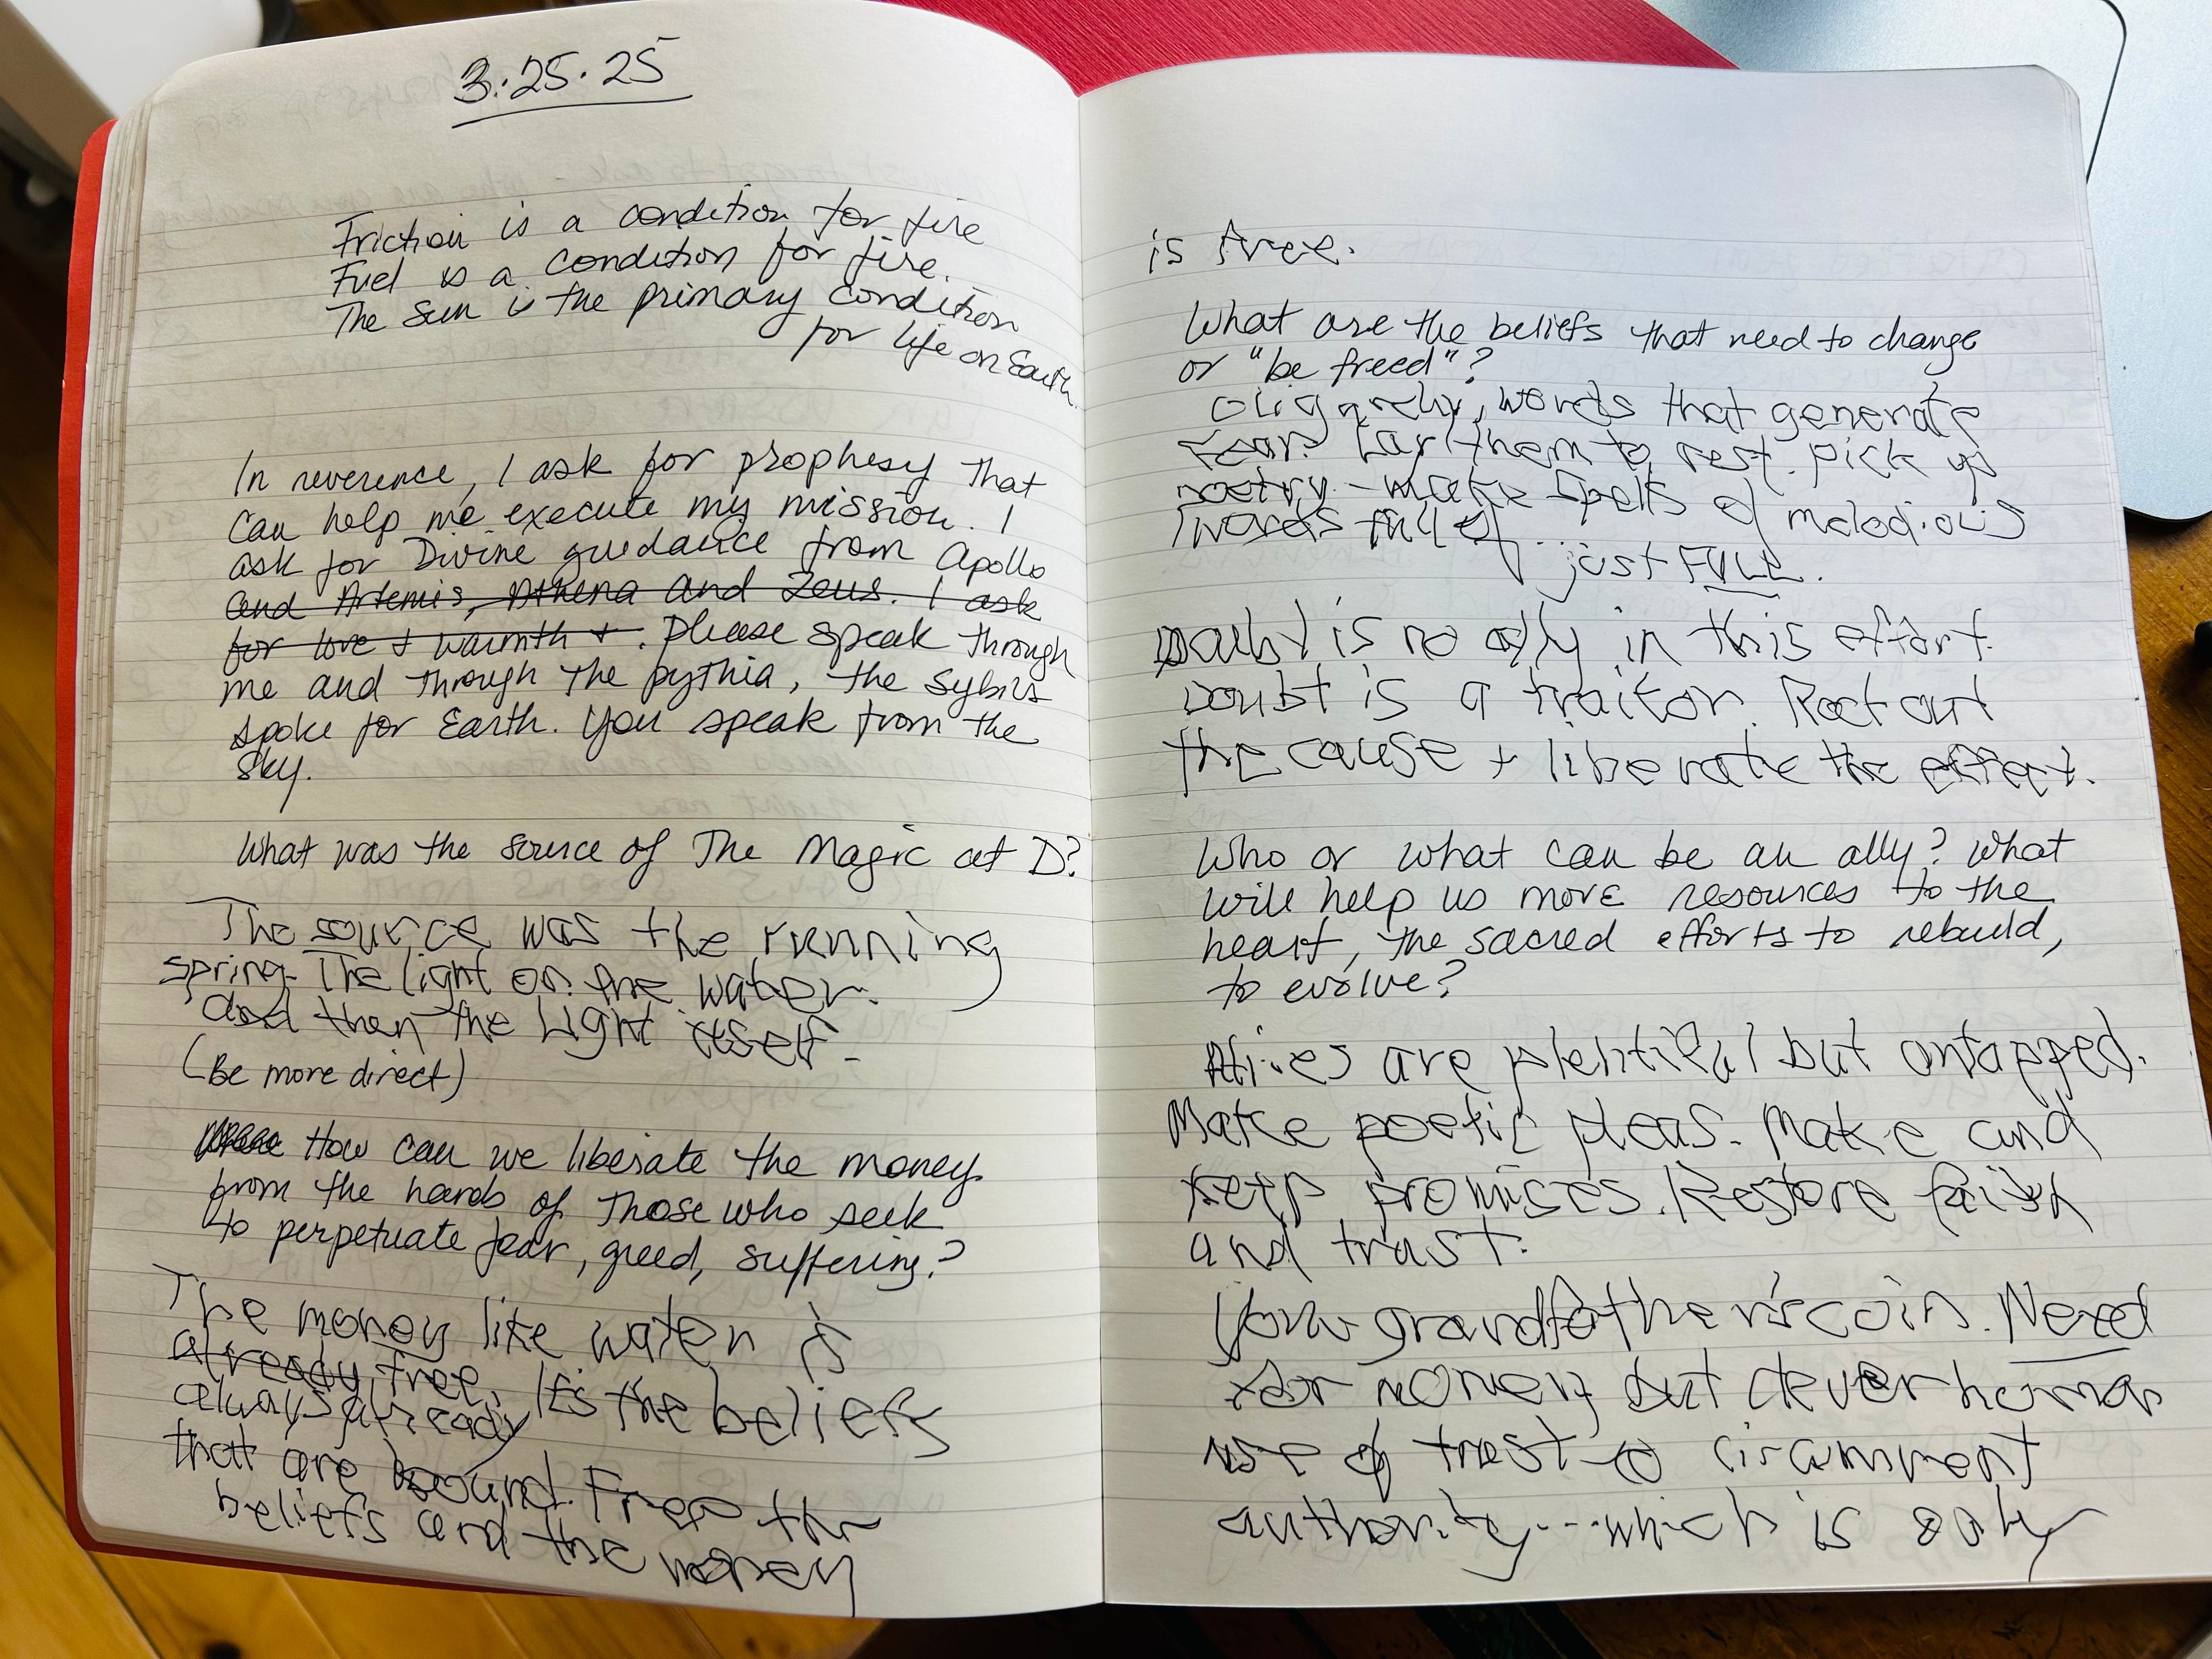 3.25.25
Friction is a condition for fire
Fuel is a condition for fire.
The Sun is the primary condition
for life on Earth.
In reverence, I ask for prophesy that
can help me execute my mission. I
ask for Divine guidance from Apollo
and Artemis, Athena and Zeus. I ask
for love + warmth + . Please speak through
me and through the pythia, the sybils
spoke for Earth. You speak from the
sky.
What was the source of The Magic at D?
The source was the running
spring. The light on the water.
and then the Light itself.
(Be more direct)
How can we liberate the money
from the hands of those who seek
to perpetuate fear, greed, suffering?
The money like water is
already free.
always already It's the beliefs
that are bound. Free the
beliefs and the money
is free.
What are the beliefs that need to change
or "be freed"?
oligarchy, words that generate
fear. them to rest. pick up
poetry - make spells of melodious
words full of...
just FULL.
Doubt is no ally in this effort.
Doubt is a traitor. Root out
the cause + liberate the effect.
Who or what can be an ally? What
will help us move resources to the
heart, the sacred efforts to rebuild,
to evolve?
Allies are plentiful but untapped.
Make poetic pleas. Make and
keep promises. Restore faith
and trust.
Your grandfather's coin. Need
for money but clever human
use of trust to circumvent
authority...which is only